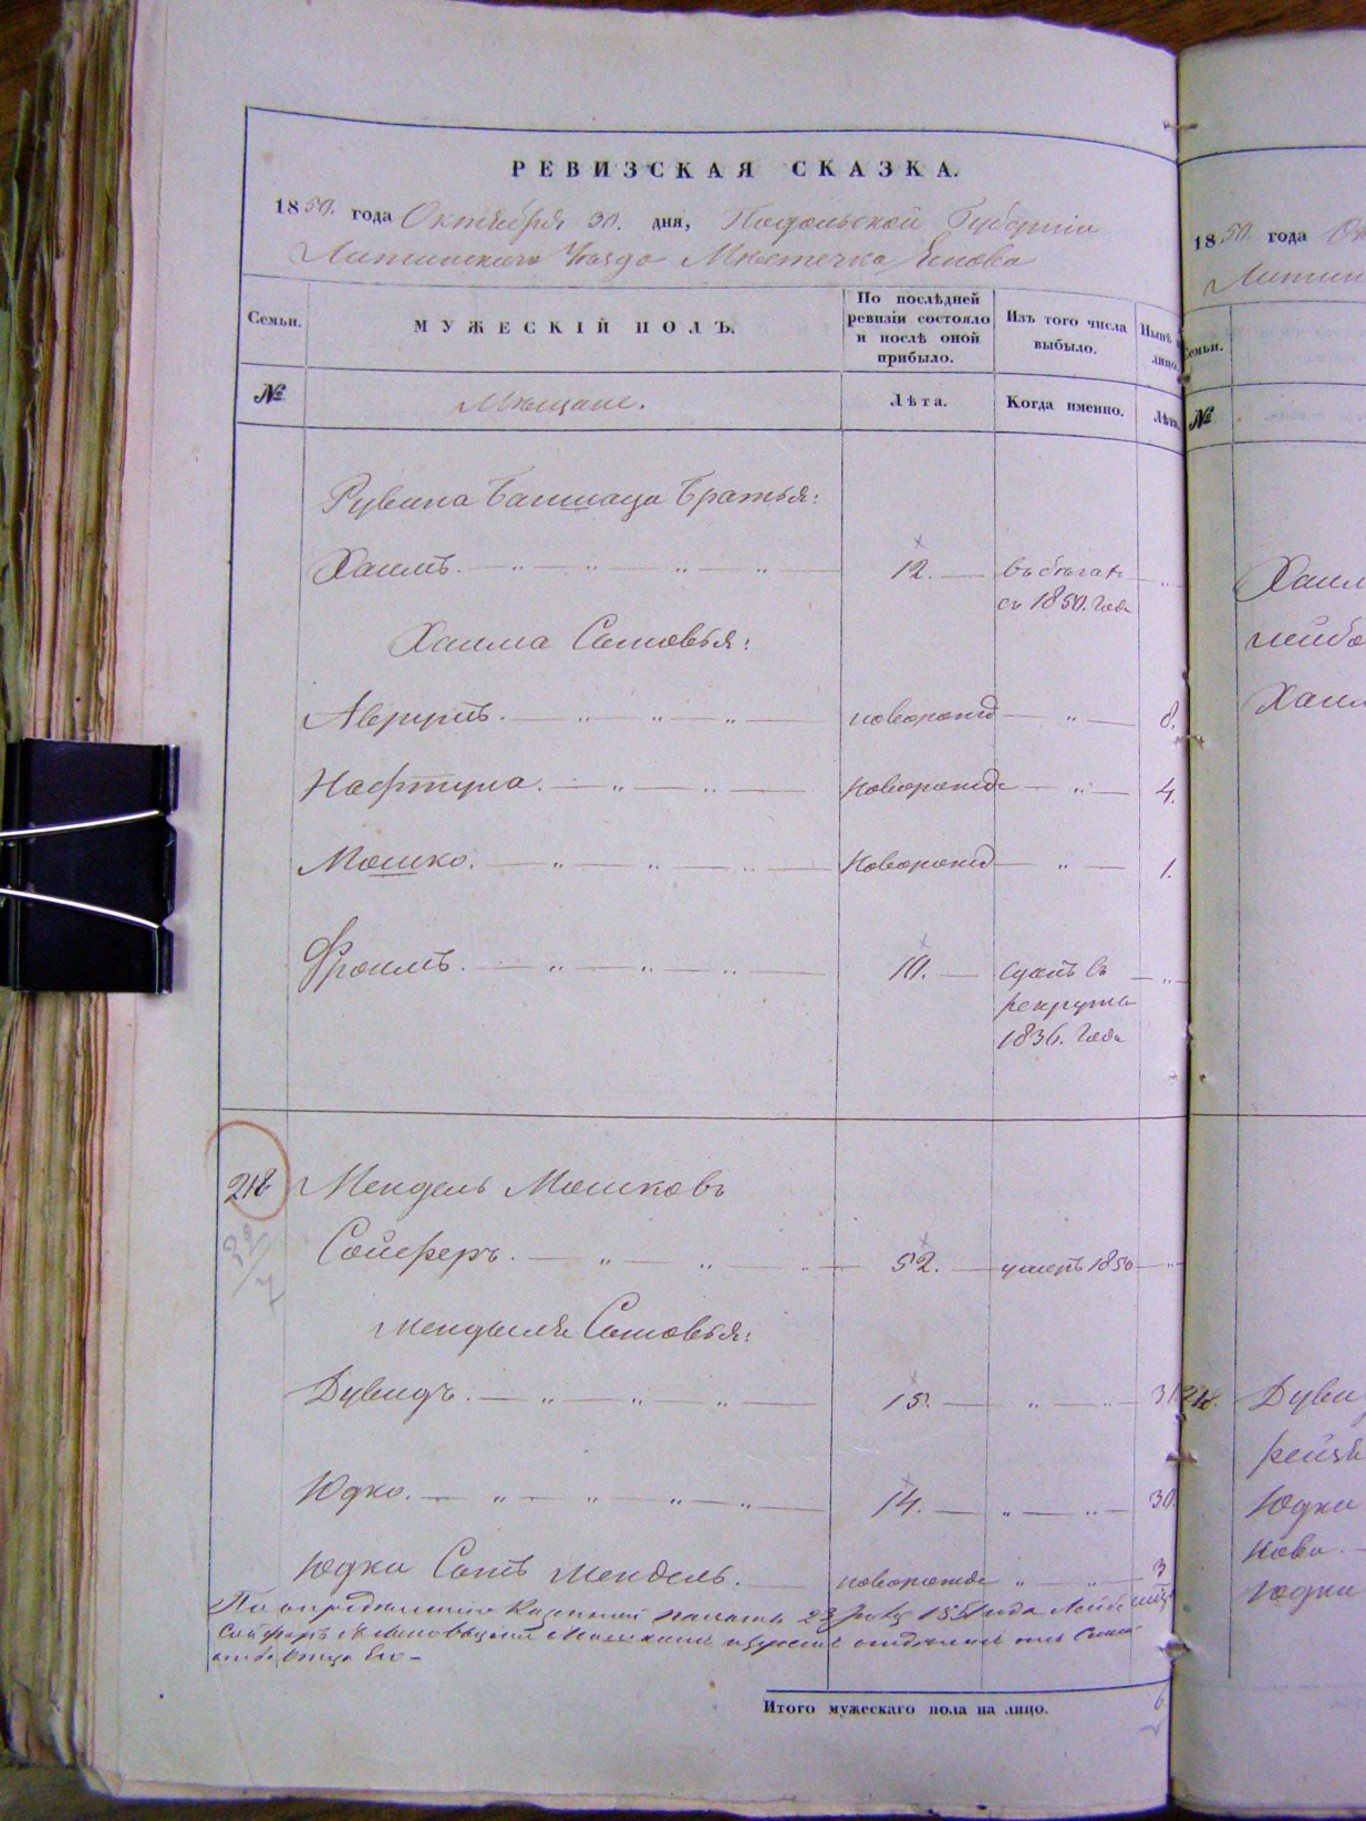 РЕВИЗСКАЯ СКАЗКА.
1850. года Октября 30. дня, Подольской Губернiи
Литинскаго Уѣзда Мѣстечка Янова
Семьи.
МУЖЕСКIЙ ПОЛЪ.
По послѣдней ревизiи состояло и послѣ оной прибыло.
Изъ того числа выбыло.
Нынѣ
лицо.
№
Мѣщане.
Лѣта.
Когда именно.
Лѣта.
Рувина Братья:
Хаимъ. 12. въ бѣгахъ
съ 1850. года
Хаима Сыновья:
Аврумъ. новорожд 8.
Нафтула. новорожде 4.
Мошко. Новорожд 1.
Фроимъ. 10. Сданъ въ
рекруты
1836. Года
218 Мендель Мошковъ
32/7
Сойферъ. 52. умеръ 1850
Менделя Сыновья:
Дувидъ. 15. 31
Юдко. 14. 30.
Юдки Сынъ Мендель. новорожде 3
По опредѣленiю Казенной палаты 23 года
Сойферъ
отца Его
Итого мужескаго пола на лицо. 6
1850. года
Литин
Семьи.
№
Хаим
лейба
Хаим
218. Дуви
рейзя
Юдки
Хова.
Юдки